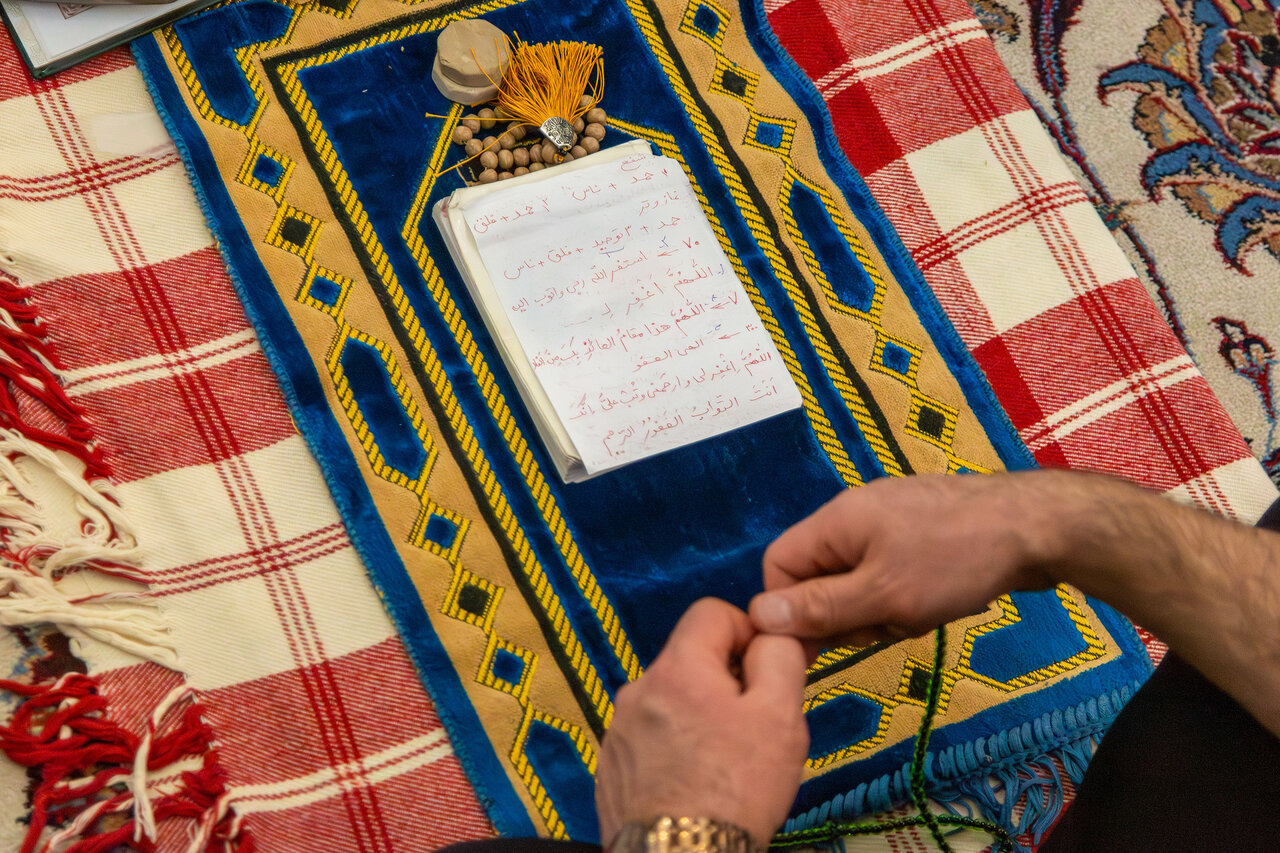 شفع
۱ حمد + ناس ۲ حمد + فلق
نماز وتر
حمد + ۳ توحید + فلق + ناس
۷۰ استغفر الله ربی و اتوب الیه
اللهُمَّ اغْفِر لِـ
۷ اللهُمَّ هذا مقامُ العائِذِ بِکَ مِنَ النّار
۳۰۰ العفو العفو
اللهُمَّ اغْفِر لی و ارحَمنی وَ تُبْ عَلَیَّ اِنَّکَ
اَنْتَ التَّوابُ الغَفُورُ الرَّحیم